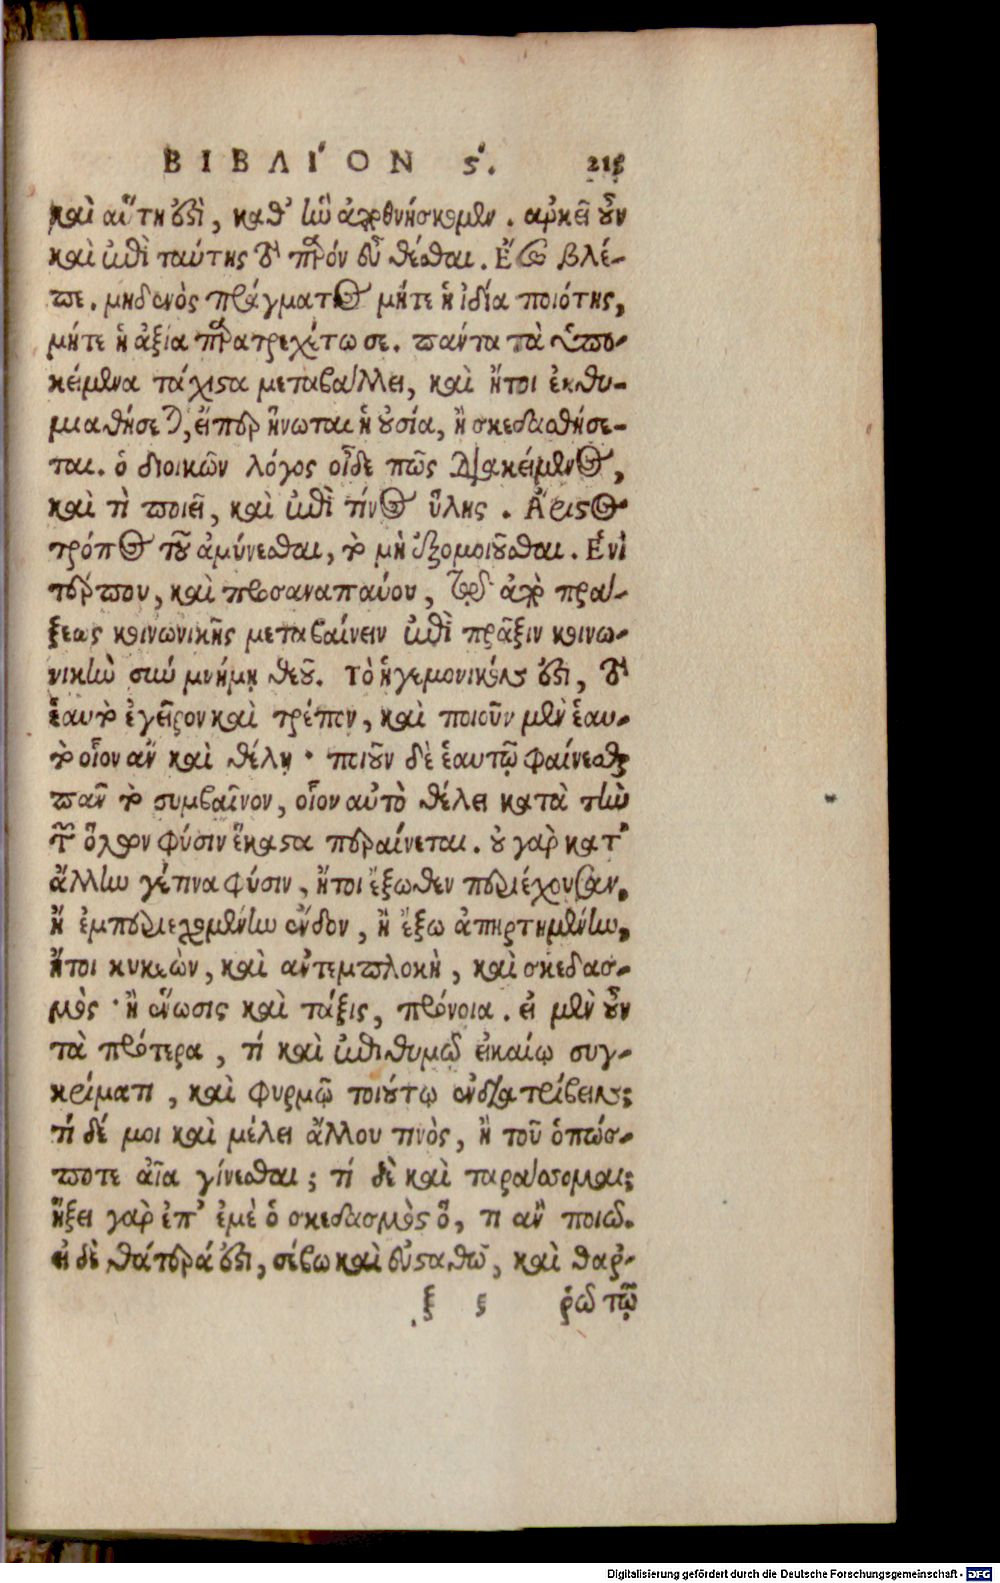 ΒΙΒΛΙʹΟΝ ϛʹ. 215
καὶ αὕτη ἐστὶ, καθʼ ἣν ἀποθνήσκομεν. ἀρκεῖ οὖν
καὶ ἐπὶ ταύτης τὸ παρὸν εὖ θέσθαι. Ἔσω βλέ-
πε. μηδενὸς πράγματος μήτε ἡ ἰδία ποιότης,
μήτε ἡ ἀξία παρατρεχέτω σε. πάντα τὰ ὑπο-
κείμενα τάχιστα μεταβάλλει, καὶ ἤτοι ἐκθυ-
μιαθήσεται, εἴπερ ἥνωται ἡ οὐσία, ἢ σκεδασθήσε-
ται. ὁ διοικῶν λόγος οἶδε πῶς διακείμενος,
καὶ τὶ ποιεῖ, καὶ ἐπὶ τίνος ὕλης. Ἄριστος
τρόπος τοῦ ἀμύνεσθαι, τὸ μὴ ἐξομοιοῦσθαι. Ἑνὶ
τέρπου, καὶ προσαναπαύου, τῷ ἀπὸ πρά-
ξεως κοινωνικῆς μεταβαίνειν ἐπὶ πρᾶξιν κοινω-
νικὴν σὺν μνήμῃ θεοῦ. Τὸ ἡγεμονικόν ἐστι, τὸ
ἑαυτὸ ἐγεῖρον καὶ τρέπον, καὶ ποιοῦν μὲν ἑαυ-
τὸ οἷον ἂν καὶ θέλῃ· ποιοῦν δὲ ἑαυτῷ φαίνεσθαι
πᾶν τὸ συμβαῖνον, οἷον αὐτὸ θέλει κατὰ τὴν
τῶν ὅλων φύσιν ἕκαστα περαίνεται. οὐ γὰρ κατʼ
ἄλλην γέ τινα φύσιν, ἤτοι ἔξωθεν περιέχουσαν,
ἢ ἐμπεριεχομένην ἔνδον, ἢ ἔξω ἀπηρτημένην,
ἤτοι κυκεὼν, καὶ ἀντεμπλοκὴ, καὶ σκεδασ-
μὸς· ἢ ἕνωσις καὶ τάξις, πρόνοια. εἰ μὲν οὖν
τὰ πρότερα, τί καὶ ἐπιθυμῶ εἰκαίῳ συγ-
κρίματι, καὶ φυρμῷ τοιούτῳ ἐνδιατρίβειν;
τί δέ μοι καὶ μέλει ἄλλου τινὸς, ἢ τοῦ ὁπώσ-
ποτε αἶα γίνεσθαι; τί δὲ καὶ ταράσσομαι;
ἥξει γὰρ ἐπʼ ἐμὲ ὁ σκεδασμὸς ὅ, τι ἂν ποιῶ.
εἰ δὲ θάτερά ἐστι, σέβω καὶ εὐσταθῶ, καὶ θαῤ-
ξ ς ῥῶ τῷ
Digitalisierung gefördert durch die Deutsche Forschungsgemeinschaft - DFG